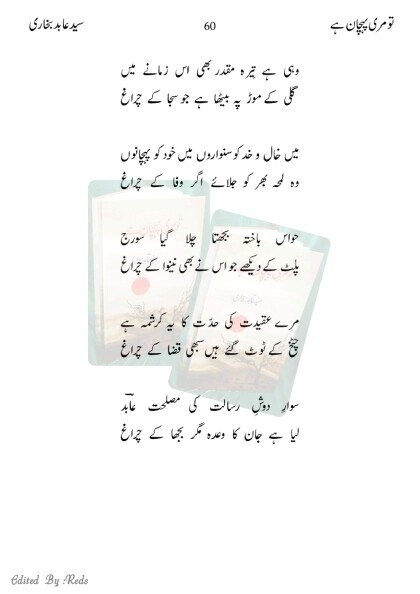 تو مری پہچان ہے 60 سید عابد بخاری
وہی ہے تیرہ مقدر بھی اس زمانے میں
گلی کے موڑ پہ بیٹھا ہے جو سجا کے چراغ
میں خال و خد کو سنواروں میں خود کو پہچانوں
وہ لمحہ بھر کو جلائے اگر وفا کے چراغ
حواس باختہ بجھتا چلا گیا سورج
پلٹ کے دیکھے جو اس نے بھی نینوا کے چراغ
مرے عقیدت کی حدّت کا یہ کرشمہ ہے
چٹخ کے ٹوٹ گئے ہیں سبھی قضا کے چراغ
سوارِ دوشِ رسالت کی مصلحت عابدؔ
لیا ہے جان کا وعدہ مگر بجھا کے چراغ
Edited By :Reds